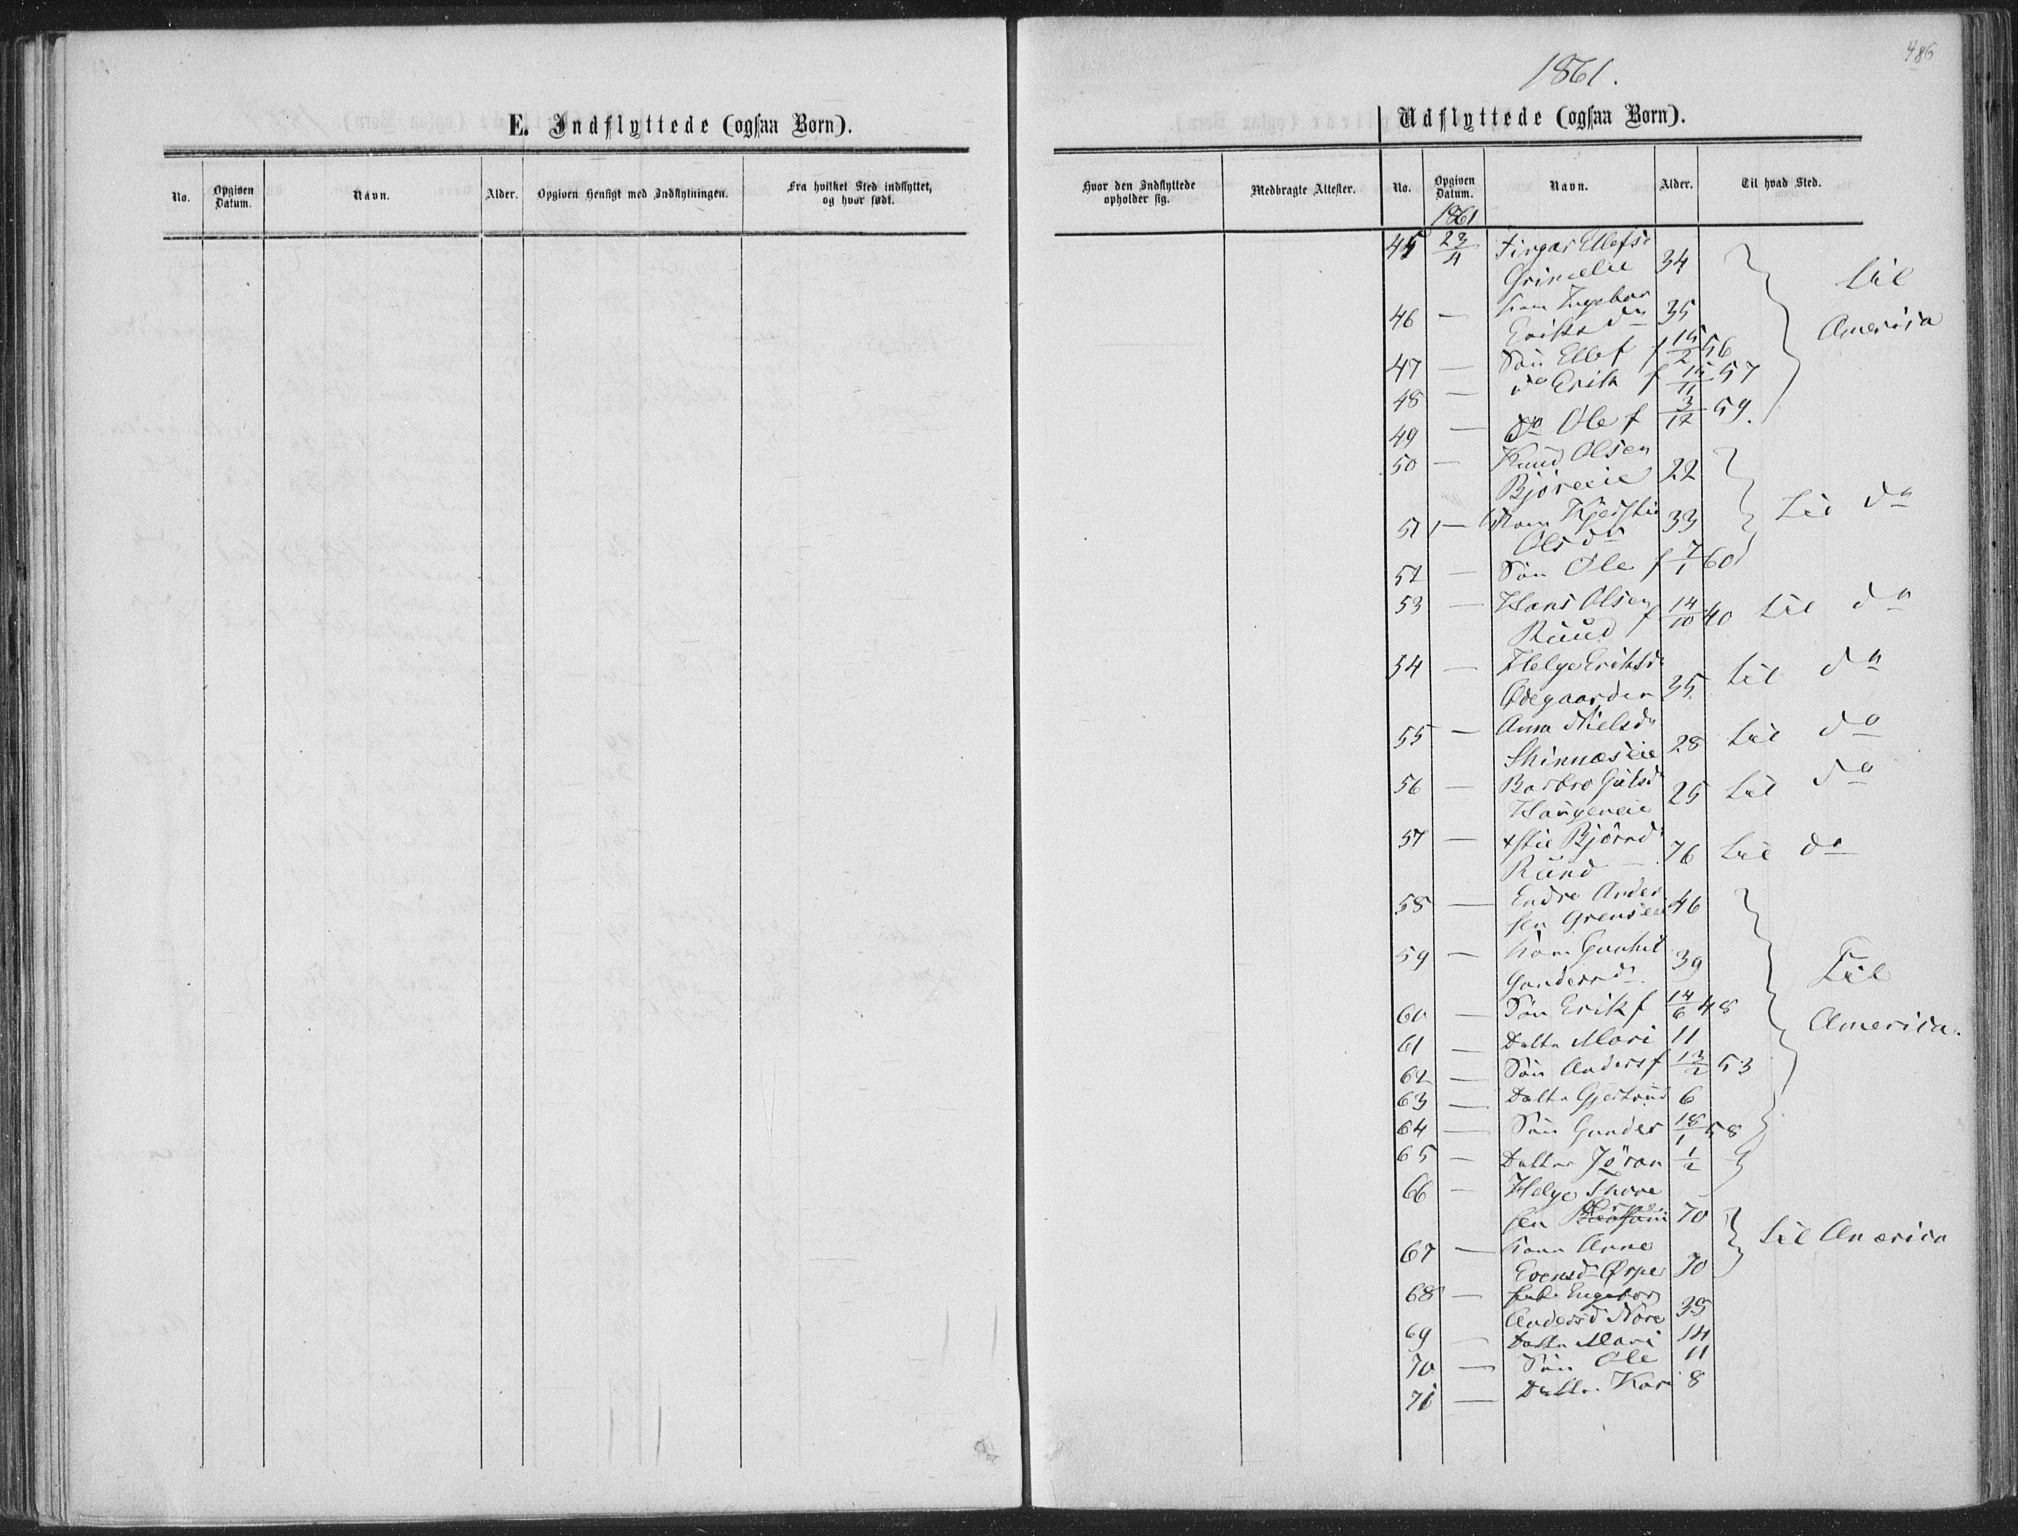 486
1861.
E. Indflyttede (ogsaa Børn).
Udflyttede (ogsaa Børn).
No. Opgiven Datum. Navn. Alder. Opgiven Hensigt med Indflytningen. Fra hvilket Sted indflyttet, og hvor født.
Hvor den Indflyttede opholder sig. Medbragte Attester. No. Opgiven Datum. Navn. Alder. Til hvad Sted.
1861
45 23/4 Ellefs
Grimelie 34 til
46 — Kone Ingebor America
Eriksdr 35
47 — Søn Ellef f 15/2 56
48 — do Erik f 15/11 57
49 — do Ole f 3/12 59.
50 — Knud Olsen
Bjøreeie 22
51 — Kone Kjersti 33 til do
Olsdr
52 — Søn Ole f 7/1 60
53 — Hans Olsen
Ruud f 14/10 40 til do
54 — Helge Eriksdr
Ødegaarden 35 til do
55 — Anna Nielsdr
Skinnæseie 28 til do
56 — Barbro Gulsdr
Haugeneie 25 til do
57 — Bjørnd
Ruud 76 til do
58 — Endre Ander
sen Grenseeie 46
59 — Kone Gunhil
Gundersd. 39 Til
60 — Søn Erik f 14/6 48 America.
61 — Datter Mari 11
62 — Søn Anders f 13/2 53
63 — Datter Gjertrud 6
64 — Søn Gunder 18/1 58
65 — Datter Jöran 1/2
66 — Helge Thore
sen Ørpe 70
67 — Kone Anne til America
Evensdr Ørpe 70
68 — Engebor
Andersd Nore 39
69 — Datter Mari 14
70 — Søn Ole 11
71 — Datter Kari 8